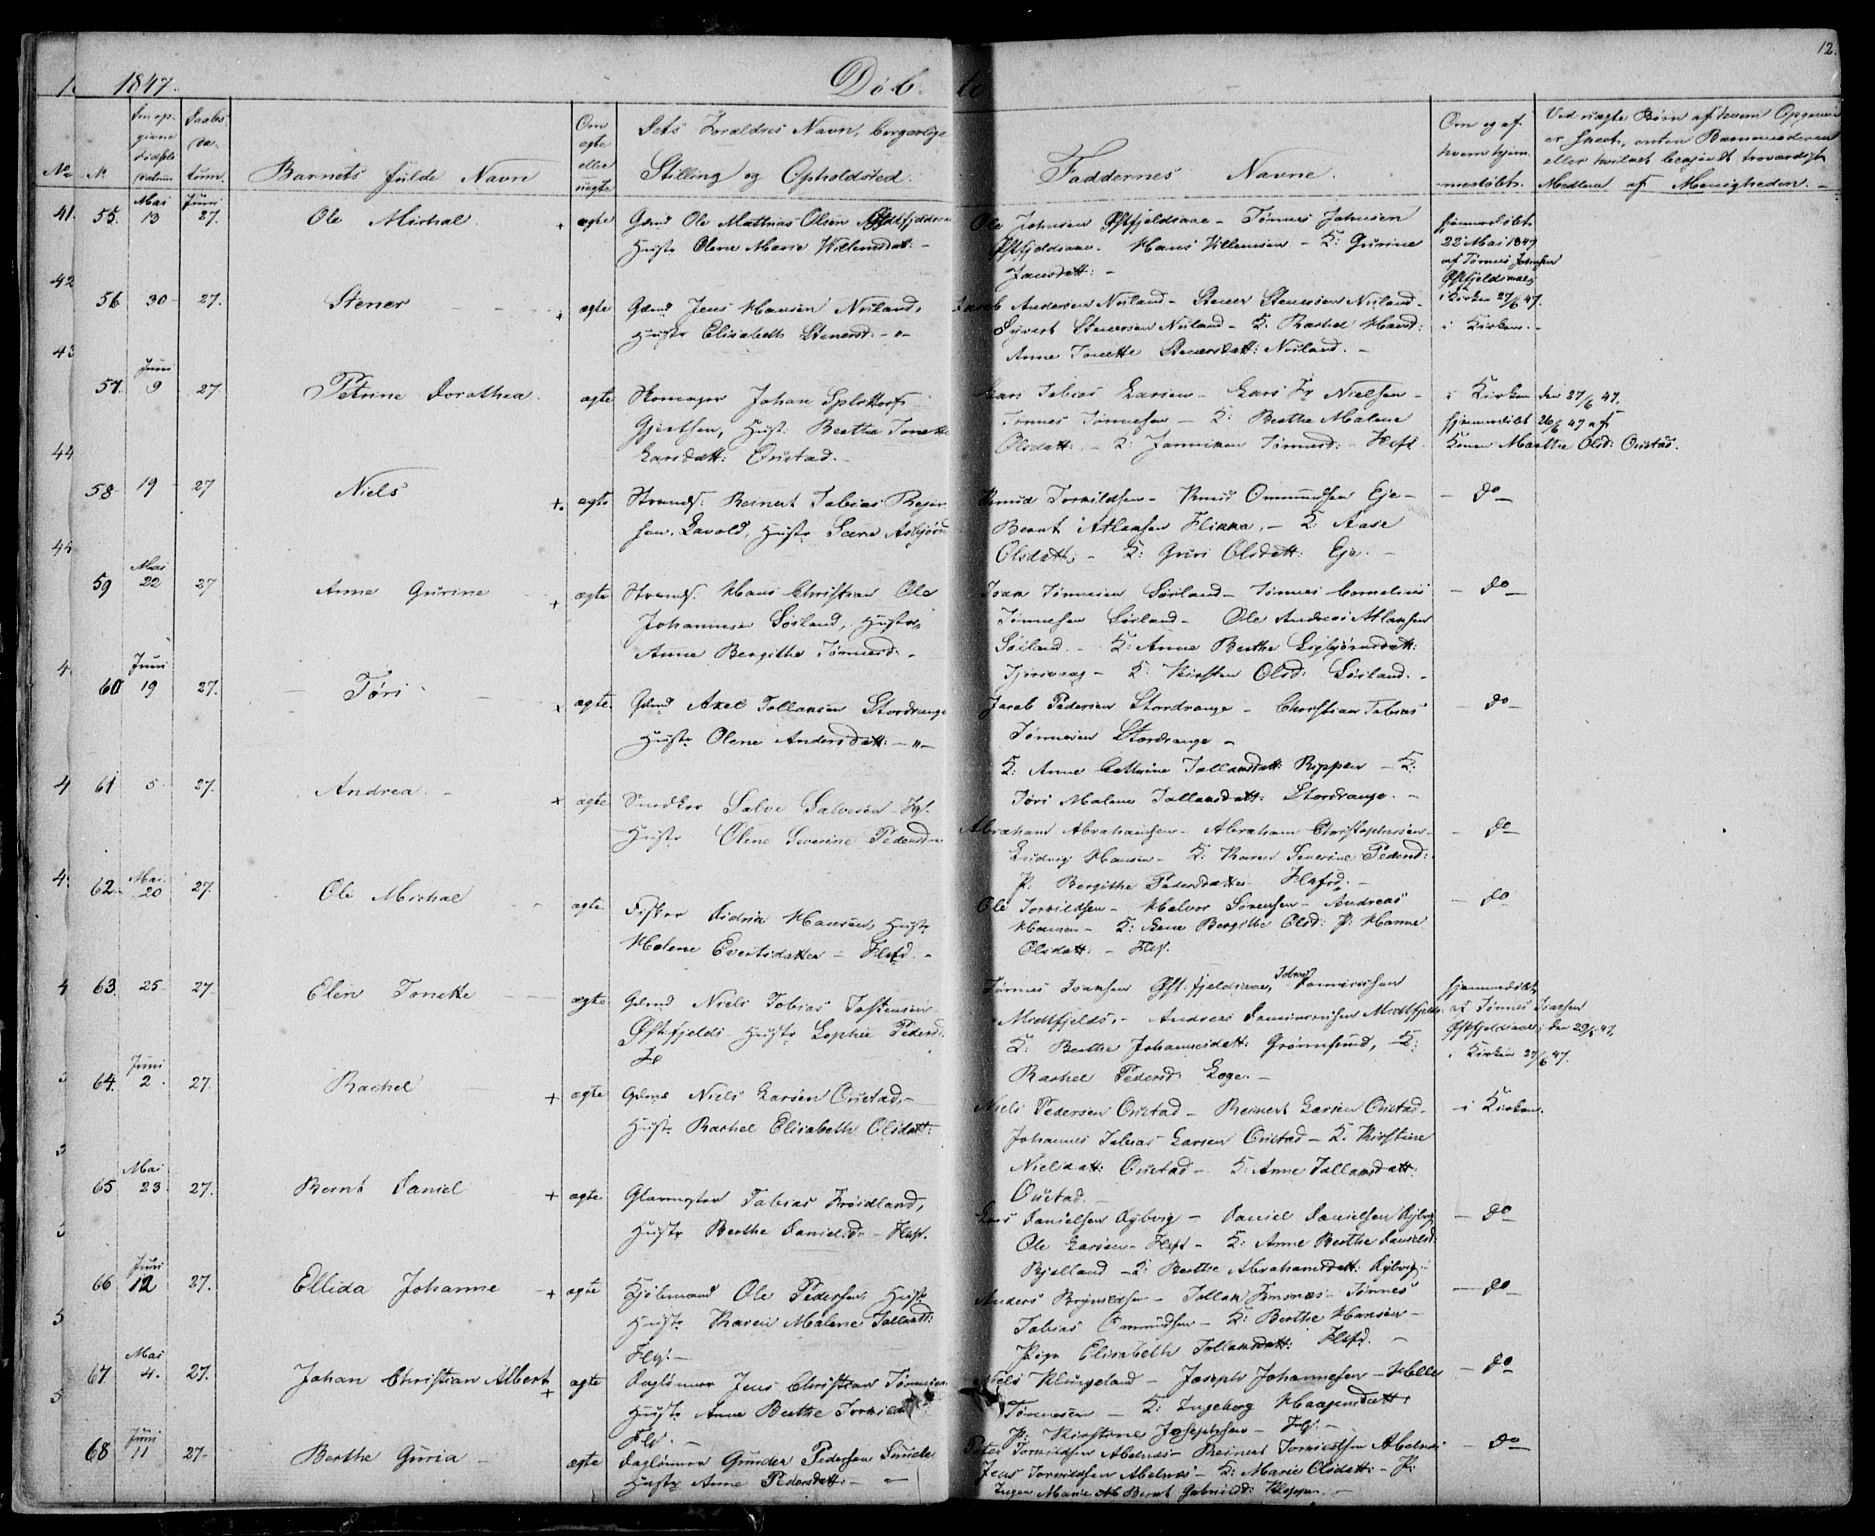 1847.
Døb-
te
12.
No
N.
Den op-
givne
Fødsels
datum
Daabs
da-
tum.
Barnets fulde Navn
Om
ægte
eller
uægte
Dets Forældres Navn, borgerlige
Stilling og Opholdssted.
Faddernes Navne.
Om og af
hvem hjem-
medøbt.
Ved uægte Børn af hvem Opgaven
er skeet, enten Barnemoderen
eller hvilket bosiddende troværdigt
Medlem af Menigheden.
55. Mai 13 Juni 27. Ole Michal. + ægte Gdmd Ole Mathias Olsen Østfjeldsaae
Hustr Olene Marie Willumsdatt: -
Ole Johnsen Østfjeldsaae - Tønnes Johnsen
Østfjeldsaae. Hans Villumsen - K: Gurine
Jansdatt: -
hjemmedøbt
22 Mai 1847
af Tønnes Johnsen
Østfjeldsaae,
i Kirken 27/6 47.
56 30 27. Stener + ægte Gdmd Jens Hansen Neiland,
Hustr Elisabeth Stenersd: - "-
Jacob Andersen Neiland - Stener Stenersen Neiland -
Syvert Stenersen Neiland - K: Rachel Hansd:
Anne Tonette Stenersdatt: Neiland. -
i Kirken. -
57. Juni 9 27. Petrine Dorothea. ægte Skomager Johan Splittorf
Gjertsen, Hust. Berthe Tonette
Larsdatt: Øustad. -
Lars Tobias Larsen - Lars Fr Nielsen -
Tønnes Tønnesen - K: Berthe Malene
Olsdatt: - K: Janniken Tønnesd: - Flef:
i Kirken den 27/6 47.
hjemmedøbt 26/6 47 af
Konen Marthe Olsd: Øustad.
58 19 27 Niels +. ægte Strands: Reinert Tobias Rejer-
sen, Lavold, Hustr Lene Asbjørnsd
Knud Torkildsen - Knud Ommundsen Eje -
Bernt Atlaksen Flikka, - K: Aase
Olsdatt, - K: Guri Olsdatt: Eje. -
- do -
59 Mai 22 27 Anne Gurine + ægte Strands. Hans Christian Ole
Johannesen Søiland, Hustr,
Anne Bergithe Tønnesd: -
Isak Tønnesen Søiland - Tønnes Cornelius
Tønnesen Søiland - Ole Andreas Atlaksen
Søiland. - K: Anne Berthe Sigbjørnsdatt:
- K: Kirsten Olsd: Søiland. -
- do -
60 Juni 19 27. Tøri + ægte. Gdmd Axel Tollaksen Stordrange
Hustr Olene Andersdatt: - "-
Jacob Pedersen Stordrange - Christian Tobias
Tønnesen Stordrange -
K: Anne Cathrine Tollaksdatt: Rippen - K:
Tøri Malene Tollaksdatt: Stordrange. -
- do -
61 5 27. Andrea. - + ægte Snedker Salve Salvesen Flf.
Hustr Olene Severine Pedersd -
Abraham Abrahamsen - Abraham Christophersen -
Ludvig Hansen - K: Karen Severine Pedersd:
P. Bergithe Pedersdatter Flefd. -
- do
62. Mai 20 27. Ole Michal ægte Fisker Didrik Hansen, Hustr
Helene Evertsdatter - Flefd. -
Ole Torkildsen - Halvor Sørensen - Andreas
Hansen - K: Lene Bergithe Olsd: P: Hanne
Olsdatt: - Flef.
- do
63. 25 27 Elen Tonette ægte Gdmd Niels Tobias Tostensen
Østfjelds- Hustr Sophie Pedersd:
Tønnes Isaksen Østfjeldsaae, Tobias
Midtfjelds, - Andreas Midtfjelds
K: Berthe Johannesdatt: Grønnesund, - K:
Rachel Pedersd: Loge. -
hjemmedøbt
af Tønnes Isaksen
Østfjeldsaae
i Kirken 27/6 47.
64. Juni 2. 27. Rachel + ægte Gdmd Niels Larsen Øustad, -
Hustr Rachel Elisabeth Olsdatt:
Niels Pedersen Øustad - Reinert Larsen Øustad -
Johannes Tobias Larsen Øustad - K. Kirstine
Nielsdatt: Øustad - K: Anne Tollaksdatt:
Øustad. -
- i Kirken.
65 Mai 23. 27. Bernt Daniel + ægte Glarmester Tobias Frøidland,
Hustr Berthe Danielsd: - Flef.
Lars Danielsen Rybvig - Daniel Danielsen Rybvig
Ole Larsen - Flef - K: Anne Berthe Danielsd:
Bjelland - K: Berthe Abrahamsdatt: Rybvig. -
- do -
66 Juni 12 27. Ellida Johanne + ægte Kjøbmand Ole Pedersen, Hustr
Hustr Karen Malene Tollaksd:
Flef. -
Anders Brynildsen - Tollak Tønnes
Tobias Ommundsen - K: Berthe Hansen -
Pige Elisabeth Tollaksdatt: Flefd. -
- do -
67 Mai 4. 27. Johan Christian Albert + ægte Daglønner Jens Christian Tønnesen
Hustr Anne Berthe Torkilds
Flf. -
Niels Klungeland - Joseph Johannesen - Helle
Tønnesen - K: Ingeborg Haagensdatt:
P: Kirstine Josephsen - Flf. -
- do
68 Juni 11 27. Berthe Guria - ægte Daglønner Gunder Pedersen Sunde
Hustr Anne Pedersdatt: - "-
Peter Torkildsen Abelnes - Reinert Torkildsen Abelnes
Jens Torkildsen Abelnes - K: Marie Olsdatt: - P:
Inger Marie Bernt Gabrielsd: -
- do -